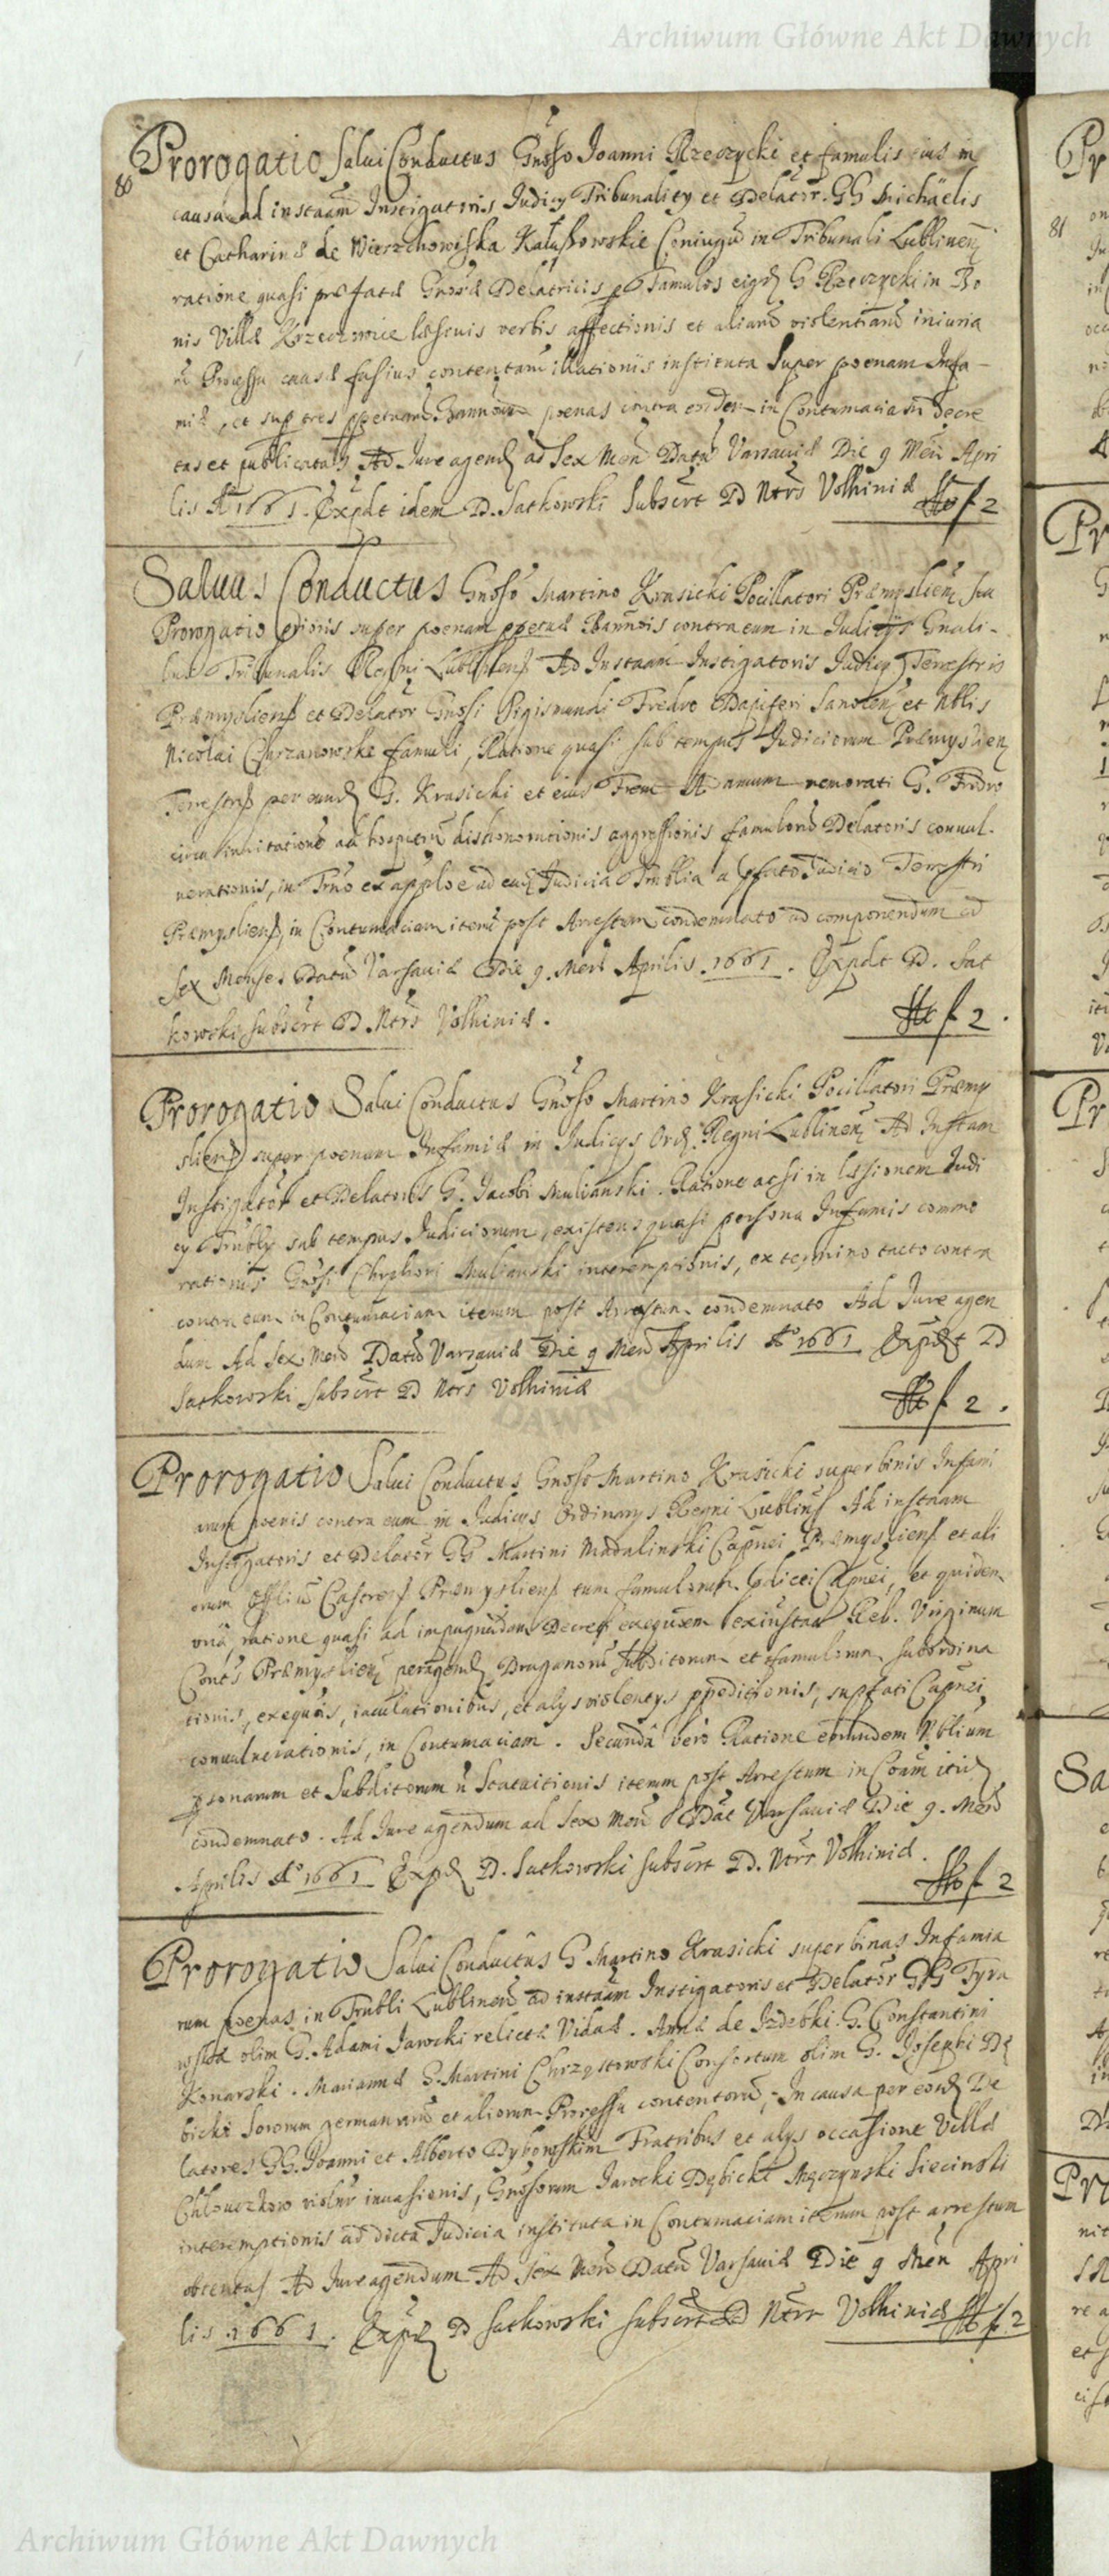 Archiwum Główne Akt Dawnych
80
Prorogatio Salui Conductus Gnoso Joanni Rzeczycki et famulis eius in
causa ad instaam Instigatoris Judicy Tribunality et Delator. GG Michäelis
et Catharinæ de Wierzchowiska Kałuszowskie Coniugu in Tribunali Lublinen
ratione quasi præfatæ Gnosæ Delatricis p Famulos eigd G Rzeczycki in Bo
nis Villæ Krzeczowice lasciuis verbis affectionis et aliaru violentiaru iniuria
ru Processu causæ fusius contentaru illationis instituta Super poenam Infa-
miæ, et sup tres ppetuaru Bannoru poenas contra eosdem in Contumaciam decre
tas et publicatas Ad Jure agend ad Sex Men Datu Varsauiæ Die 9 Men Apri
lis Ao 1661. Expdt idem D. Satkowski Subscrt D Ntrs Volhiniæ f 2
Saluus Conductus Gnoso Martino Krasicki Pocillatori Præmyslien, seu
Prorogatio erionis super poenam ppetuæ Bannois contra eum in Judicys Gnali-
bus Tribunalis Regni Lublinens Ad Instaam Instigatoris Judicy Terrestris
Præmysliens et Delator Gnosi Sigismundi Fredro Dapiferi Sanocen et Nblis
Nicolai Chrzanowske famuli, Ratione quasi sub tempus Judiciorum Præmyslien
Terrestrs per eund G. Krasicki et eius Frem A amum memorati G. Fredro
circa inuitationè ad hospitiu dishonorationis aggressionis famuloru Delatoris conuul-
nerationis, in Trno ex applæ ad ead Judicia Trnblia a pfato Judicio Terestri
Præmysliens, in Contumaciam iteru post Arrestum condemnato ad componendum ad
Sex Menses Datu Varsauiæ Die 9. Mens Aprilis .1661. Expdt D. Sat
kowski subscrt D. Ntrs Volhiniæ. f 2.
Prorogatio Salui Conductus Gnoso Martino Krasicki Pocillatori Præmy
sliens super poenam Infamiæ in Judicys Ord. Regni Lublinen Ad Instam
Instigator et Delatoris G. Jacobi Mulianski. Ratione acsi in læsionem Judi
cy Trnbly sub tempus Judiciorum, existens quasi persona Infamis commo
rationis Gnosi Chrphori Mulianski interemptionis, ex termino tacto contra
contra eum in Contumaciam iterum post Arrestum condemnato Ad Jure agen
dum Ad Sex Men Datu Varsauiæ Die 9 Men Aprilis Ao 1661 Expdt D
Satkowski subscrt D Ntrs Volhiniæ f 2.
Prorogatio Salui Conductus Gnoso Martino Krasicki super binis Infami
arum poenis contra eum in Judicys Ordinarys Regni Lublins Ad instaam
Instigatoris et Delator GG Martini Madalinski Capnei Præmysliens et ali
orum Offliu Castren Præmysliens tum famulorum pdicti Capnei, et quidem
unâ ratione quasi ad impugnadam Decreti exequem ex instaa Rel. Virginum
Conts Præmyslien peragend Draganoru subditorum et famulorum subordina
tionis, exequois, iaculationibus, et alys violentys ppeditionis, supfati Capnei
conuulnerationis, in Contumaciam. Secunda vero Ratione eorundem Nblium
psonarum et Subditorum ñ Statuitionis iterum post Arrestum in Coam itid
condemnato. Ad Jure agendum ad Sex Men Dat Varsauiæ Die 9. Mens
Aprilis Ao 1661 Expd D. Satkowski subscrt D. Ntrs Volhiniæ. f 2
Prorogatio Salui Conductus G Martino Krasicki super binas Infamia
rum poenas in Trnbli Lublinen ad instaam Instigatoris et Delator GG Tyra
wska olim G. Adami Jarocki relictæ Viduæ. Annæ de Izdebki G. Constantini
Konarski. Mariannæ G. Martini Chrzqstowski Consortum olim G. Josephi De
bicki Sororum germanaru et aliorum Processu contentoru, In causa per eosd De
latores GG. Joanni et Alberto Dybowskim Fratribus et alys occasione Villæ
Chlouczkow violnæ inuasionis, Gnosorum Jarocki Dębicki Męczynski Siecinski
interemptionis ad dicta Judicia instituta in Contumaciam iterum post arrestum
obtentas Ad Jure agendum Ad Sex Men Datu Varsauiæ Die 9 Men Apri
lis .1661. Expd D Satkowski subscrt D Ntrs Volhiniæ f 2
81
Archiwum Główne Akt Dawnych